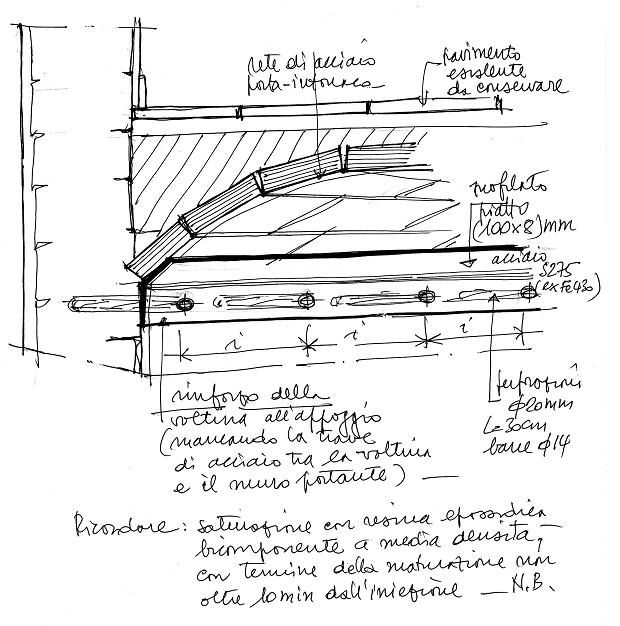 rete di acciaio
porta-intonaco
pavimento
esistente
da conservare
profilato
piatto
(100x8)mm
acciaio
S275
(ex Fe430)
i i i
perforazioni
Φ20mm
L=30cm
barre Φ14
rinforzo della
voltina all'appoggio
(mancando la trave
di acciaio tra la voltina
e il muro portante) —
Ricordare: saturazione con resina epossidica
bicomponente a media densità,
con termine della maturazione non
oltre 10min dall'iniezione — N.B.